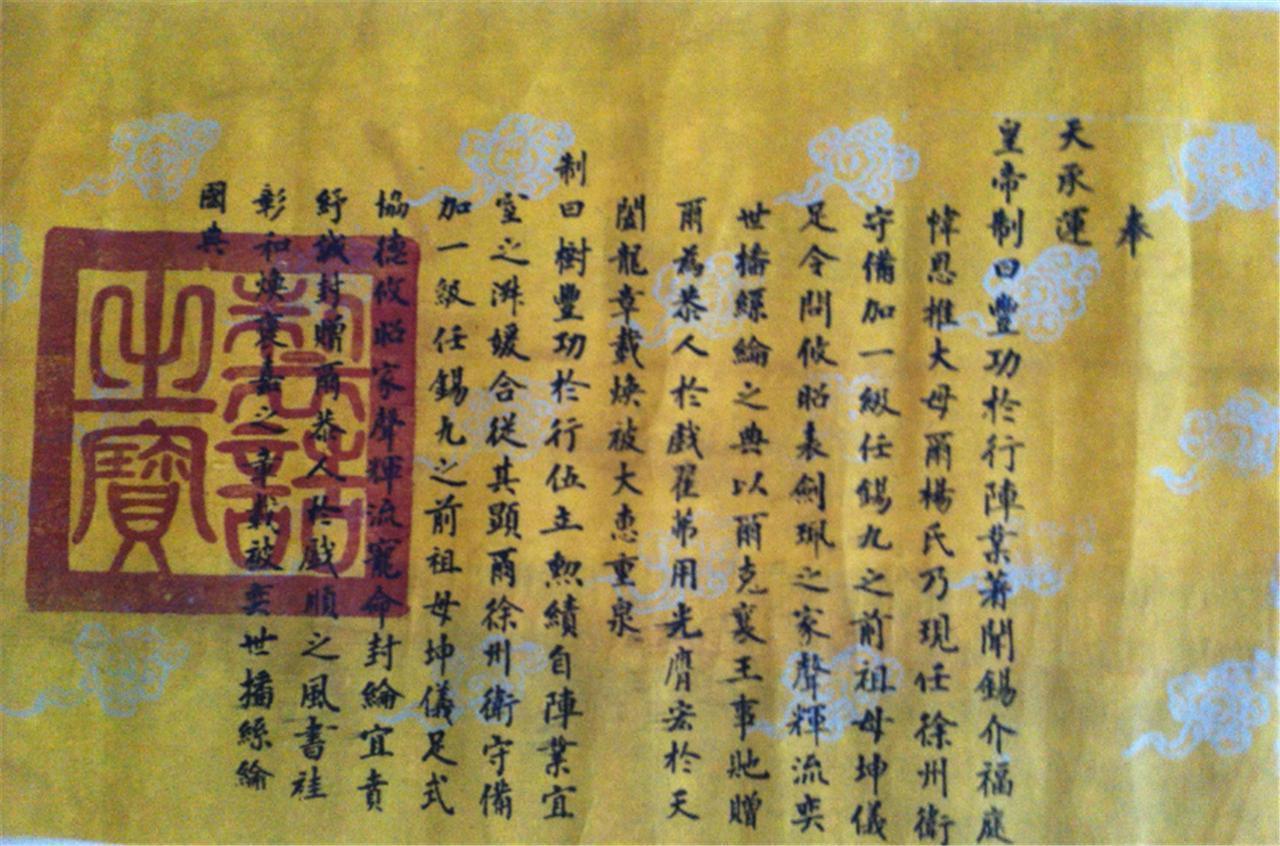 奉
天承運
皇帝制曰豐功於行陣業著閑錫介福庭
幃恩推大母爾楊氏乃現任徐州衛
守備加一級任錫九之前祖母坤儀
足令問攸昭表劍珮之家聲輝流奕
世播縲綸之典以爾克襄王事貤贈
爾為恭人於戲翟茀用光膺宏於天
闔龍章載煥被大惠重泉
制曰樹豐功於行伍立勲績自陣業宜
室之淋媛合從其顯爾徐州衛守備
加一級任錫九之前祖母坤儀足式
協德攸昭家聲輝流寵命封綸宜賁
紓誠封贈爾恭人於戲順之風書袿
彰和煥褒嘉之章載被奕世播絲綸
國典
制誥之寶